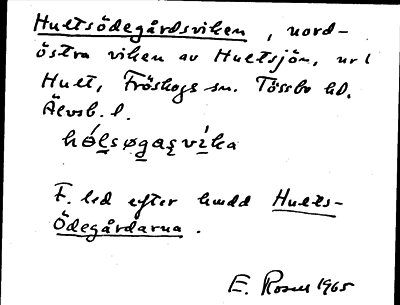 Hultsödegårdsviken, nord-
östra viken av Hultsjön, ur
Hult, Fröskogs sn. Tössbo hd.
Älvsb. l.
hólsøgaṣvíka
F. led efter hmdd Hults-
Ödegårdarna.
E. Rosell 1965